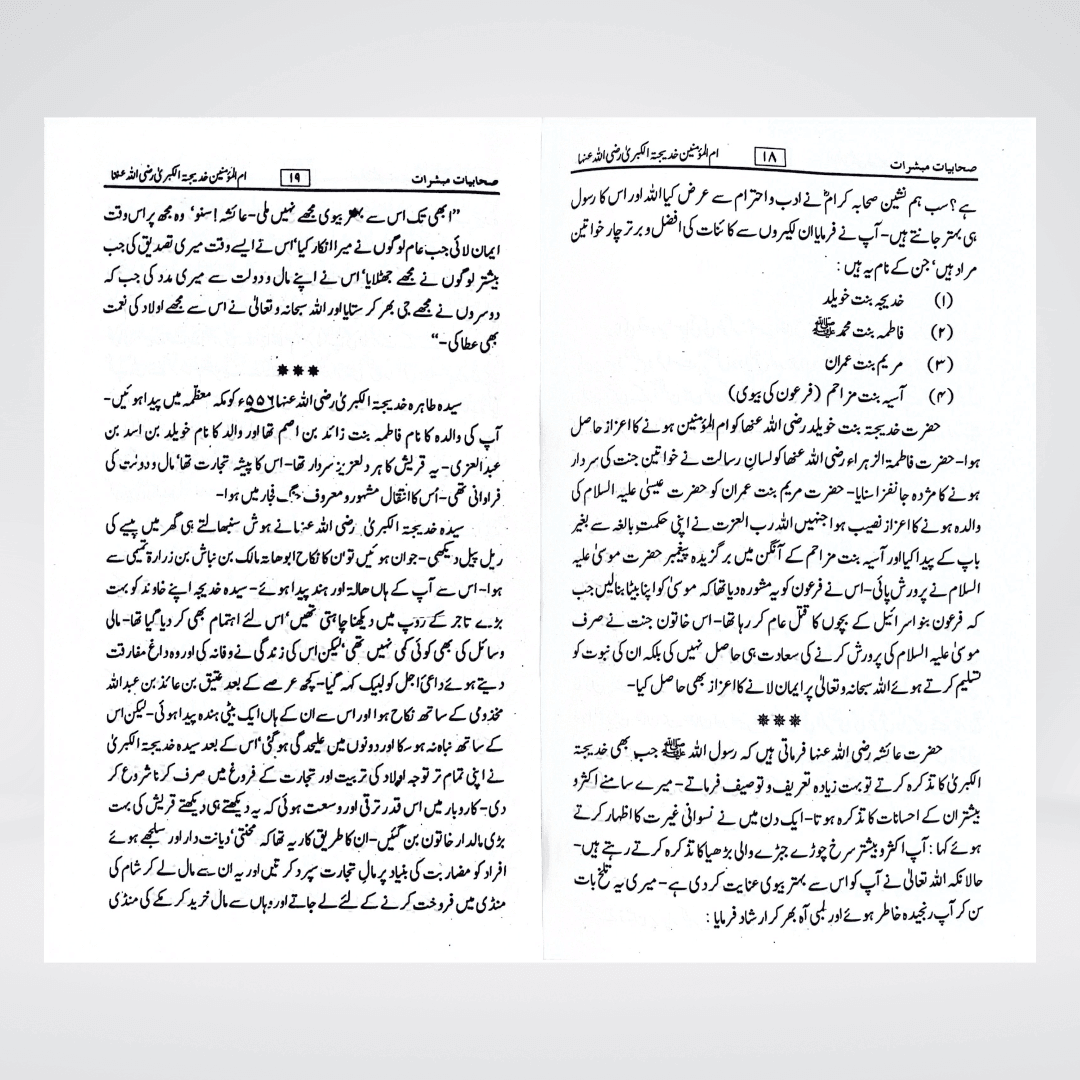 صحابیات مبشرات ۱۸ ام المؤمنین خدیجۃ الکبریٰ رضی اللہ عنہا
ہے؟ سب ہم نشین صحابہ کرامؓ نے ادب و احترام سے عرض کیا اللہ اور اس کا رسول
ہی بہتر جانتے ہیں۔ آپ نے فرمایا ان لکیروں سے کائنات کی افضل و برتر چار خواتین
مراد ہیں‘ جن کے نام یہ ہیں :
(۱) خدیجہ بنت خویلد
(۲) فاطمہ بنت محمد ﷺ
(۳) مریم بنت عمران
(۴) آسیہ بنت مزاحم (فرعون کی بیوی)
حضرت خدیجۃ بنت خویلد رضی اللہ عنھا کو ام المؤمنین ہونے کا اعزاز حاصل
ہوا۔ حضرت فاطمۃ الزہراء رضی اللہ عنھا کو لسانِ رسالت نے خواتین جنت کی سردار
ہونے کا مژدہ جانفزا سنایا۔ حضرت مریم بنت عمران کو حضرت عیسیٰ علیہ السلام کی
والدہ ہونے کا اعزاز نصیب ہوا جنہیں اللہ رب العزت نے اپنی حکمتِ بالغہ سے بغیر
باپ کے پیدا کیا اور آسیہ بنت مزاحم کے آنگن میں برگزیدہ پیغمبر حضرت موسیٰ علیہ
السلام نے پرورش پائی۔ اس نے فرعون کو یہ مشورہ دیا تھا کہ موسیٰ کو اپنا بیٹا بنالیں جب
کہ فرعون بنو اسرائیل کے بچوں کا قتل عام کر رہا تھا۔ اس خاتون جنت نے صرف
موسیٰ علیہ السلام کی پرورش کرنے کی سعادت ہی حاصل نہیں کی بلکہ ان کی نبوت کو
تسلیم کرتے ہوئے اللہ سبحانہ و تعالیٰ پر ایمان لانے کا اعزاز بھی حاصل کیا۔
***
حضرت عائشہ رضی اللہ عنہا فرماتی ہیں کہ رسول اللہ ﷺ جب بھی خدیجۃ
الکبریٰ کا تذکرہ کرتے تو بہت زیادہ تعریف و توصیف فرماتے۔ میرے سامنے اکثر و
بیشتر ان کے احسانات کا تذکرہ ہوتا۔ ایک دن میں نے نسوانی غیرت کا اظہار کرتے
ہوئے کہا : آپ اکثر و بیشتر سرخ چوڑے جبڑے والی بڑھیا کا تذکرہ کرتے رہتے ہیں۔
حالانکہ اللہ تعالیٰ نے آپ کو اس سے بہتر بیوی عنایت کر دی ہے۔ میری یہ تلخ بات
سن کر آپ رنجیدہ خاطر ہوئے اور لمبی آہ بھر کر ارشاد فرمایا :
صحابیات مبشرات ۱۹ ام المؤمنین خدیجۃ الکبریٰ رضی اللہ عنہا
”ابھی تک اس سے بہتر بیوی مجھے نہیں ملی۔ عائشہ! سنو‘ وہ مجھ پر اس وقت
ایمان لائی جب عام لوگوں نے میرا انکار کیا‘ اس نے ایسے وقت میری تصدیق کی جب
بیشتر لوگوں نے مجھے جھٹلایا‘ اس نے اپنے مال و دولت سے میری مدد کی جب کہ
دوسروں نے مجھے جی بھر کر ستایا اور اللہ سبحانہ و تعالیٰ نے اس سے مجھے اولاد کی نعمت
بھی عطا کی۔“
***
سیدہ طاہرہ خدیجۃ الکبریٰ رضی اللہ عنہا ۵۵۶ء کو مکہ معظّمہ میں پیدا ہوئیں۔
آپ کی والدہ کا نام فاطمہ بنت زائد بن اصم تھا اور والد کا نام خویلد بن اسد بن
عبدالعزی۔ یہ قریش کا ہر دلعزیز سردار تھا۔ اس کا پیشہ تجارت تھا‘ مال و دولت کی
فراوانی تھی۔ اُس کا انتقال مشہور و معروف جنگ فجار میں ہوا۔
سیدہ خدیجۃ الکبریٰ رضی اللہ عنہا نے ہوش سنبھالتے ہی گھر میں پیسے کی
ریل پیل دیکھی۔ جوان ہوئیں تو ان کا نکاح ابوھالہ مالک بن نباش بن زرارۃ تمیمی سے
ہوا۔ اس سے آپ کے ہاں ھالہ اور ہند پیدا ہوئے۔ سیدہ خدیجہ اپنے خاوند کو بہت
بڑے تاجر کے روپ میں دیکھنا چاہتی تھیں‘ اس لئے اہتمام بھی کر دیا گیا تھا۔ مالی
وسائل کی بھی کوئی کمی نہیں تھی‘ لیکن اس کی زندگی نے وفا نہ کی اور وہ داغِ مفارقت
دیتے ہوئے داعیٔ اجل کو لبیک کہہ گیا۔ کچھ عرصے کے بعد عتیق بن عائذ بن عبداللہ
مخذومی کے ساتھ نکاح ہوا اور اس سے ان کے ہاں ایک بیٹی ہندہ پیدا ہوئی۔ لیکن اس
کے ساتھ نباہ نہ ہو سکا اور دونوں میں علیحدگی ہو گئی‘ اس کے بعد سیدہ خدیجۃ الکبریٰ
نے اپنی تمام تر توجہ اولاد کی تربیت اور تجارت کے فروغ میں صرف کرنا شروع کر
دی۔ کاروبار میں اس قدر ترقی اور وسعت ہوئی کہ یہ دیکھتے ہی دیکھتے قریش کی بہت
بڑی مالدار خاتون بن گئیں۔ ان کا طریق کار یہ تھا کہ محنتی‘ دیانت دار اور سلجھے ہوئے
افراد کو مضاربت کی بنیاد پر مالِ تجارت سپرد کرتیں اور یہ ان سے مال لے کر شام کی
منڈی میں فروخت کرنے کے لئے لے جاتے اور وہاں سے مال خرید کر مکے کی منڈی